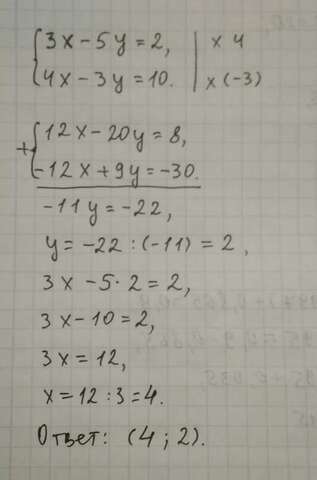 {3x - 5y = 2, | x 4
{4x - 3y = 10. | x (-3)
+{12x - 20y = 8,
{-12x + 9y = -30.
-11y = -22,
y = -22 : (-11) = 2,
3x - 5·2 = 2,
3x - 10 = 2,
3x = 12,
x = 12 : 3 = 4.
Ответ: (4 ; 2).